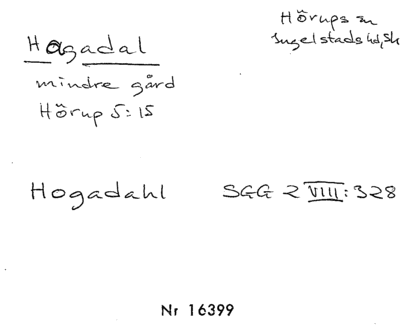 Hörups sn
Ingelstads hd, Sk
Hagadal
mindre gård
Hörup 5:15
Hogadahl SGG 2 VIII: 328
Nr 16399